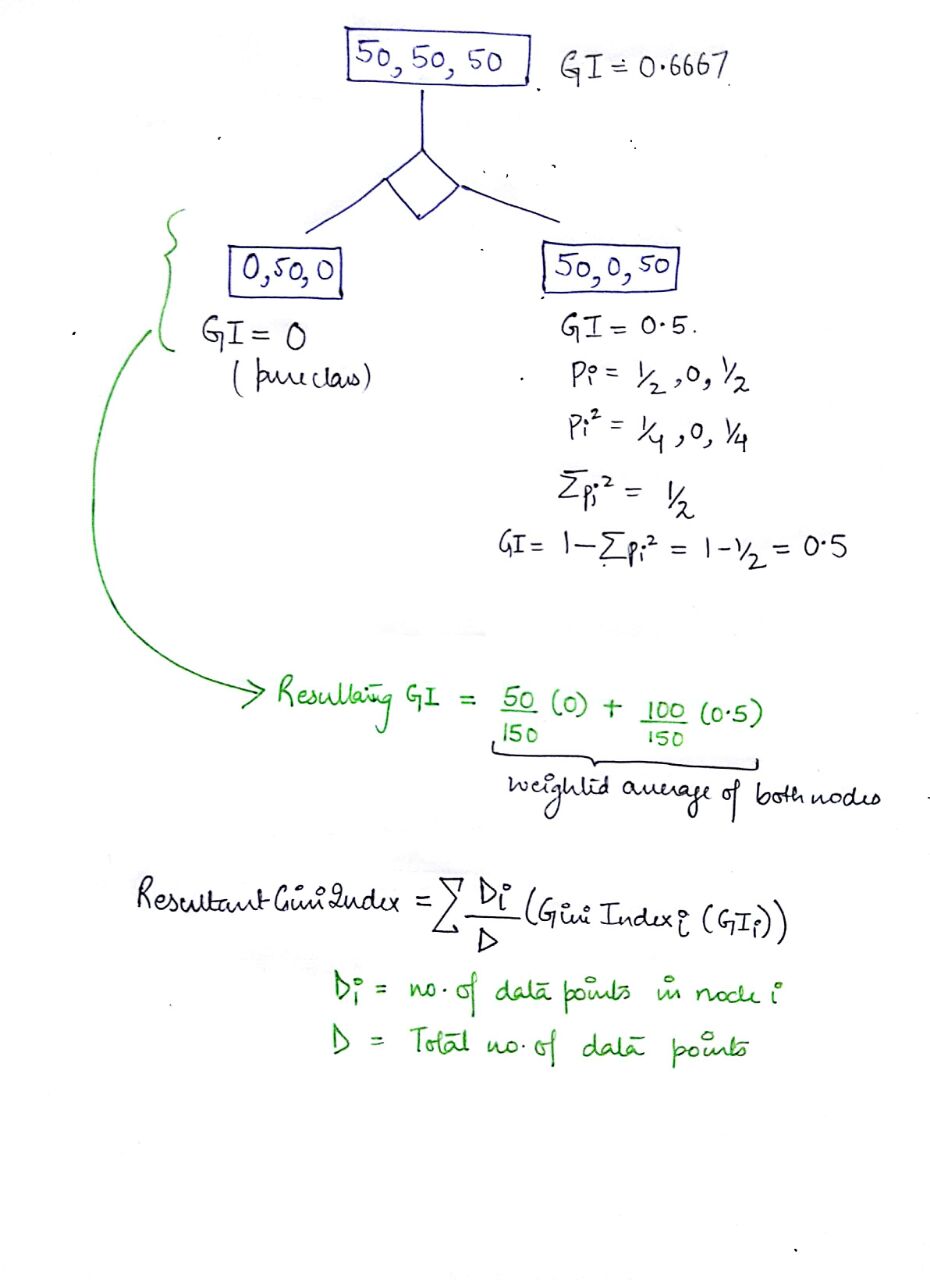 50, 50, 50
GI = 0.6667
0,50,0
50,0,50
GI = 0
(pure class)
GI = 0.5.
Pi = 1/2 ,0, 1/2
Pi² = 1/4 ,0, 1/4
Σpi² = 1/2
GI = 1-Σpi² = 1-1/2 = 0.5
Resulting GI = 50/150 (0) + 100/150 (0.5)
weighted average of both nodes
Resultant Gini Index = Σ Di/D (Gini Index i (GIi))
Di = no. of data points in node i
D = Total no. of data points